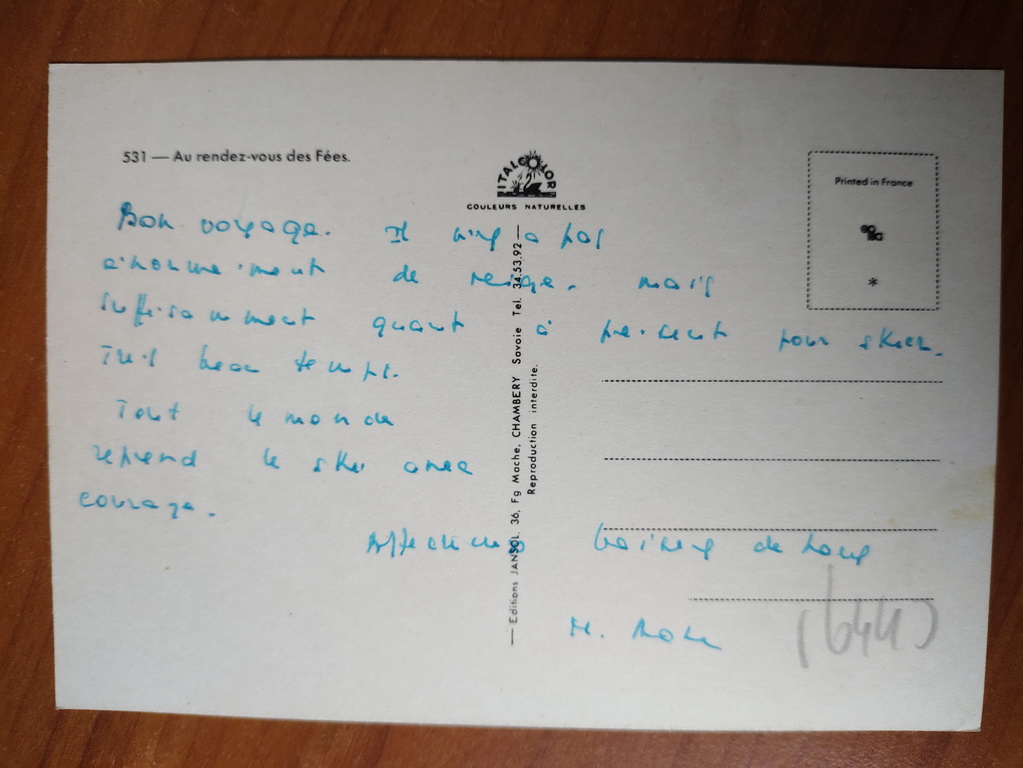 531 — Au rendez-vous des Fées.
ITALCOLOR
COULEURS NATURELLES
Printed in France
*
Bon voyage. Il n'y a pas
énormément de neige. mais
suffisamment quant à présent pour skier.
Très beau temps.
Tout le monde
reprend le ski avec
courage.
Affectueux baisers de tous
M.
(644)
— Editions JANSOL. 36, Fg Mache, CHAMBERY Savoie Tel. 34.53.92 —
Reproduction interdite.